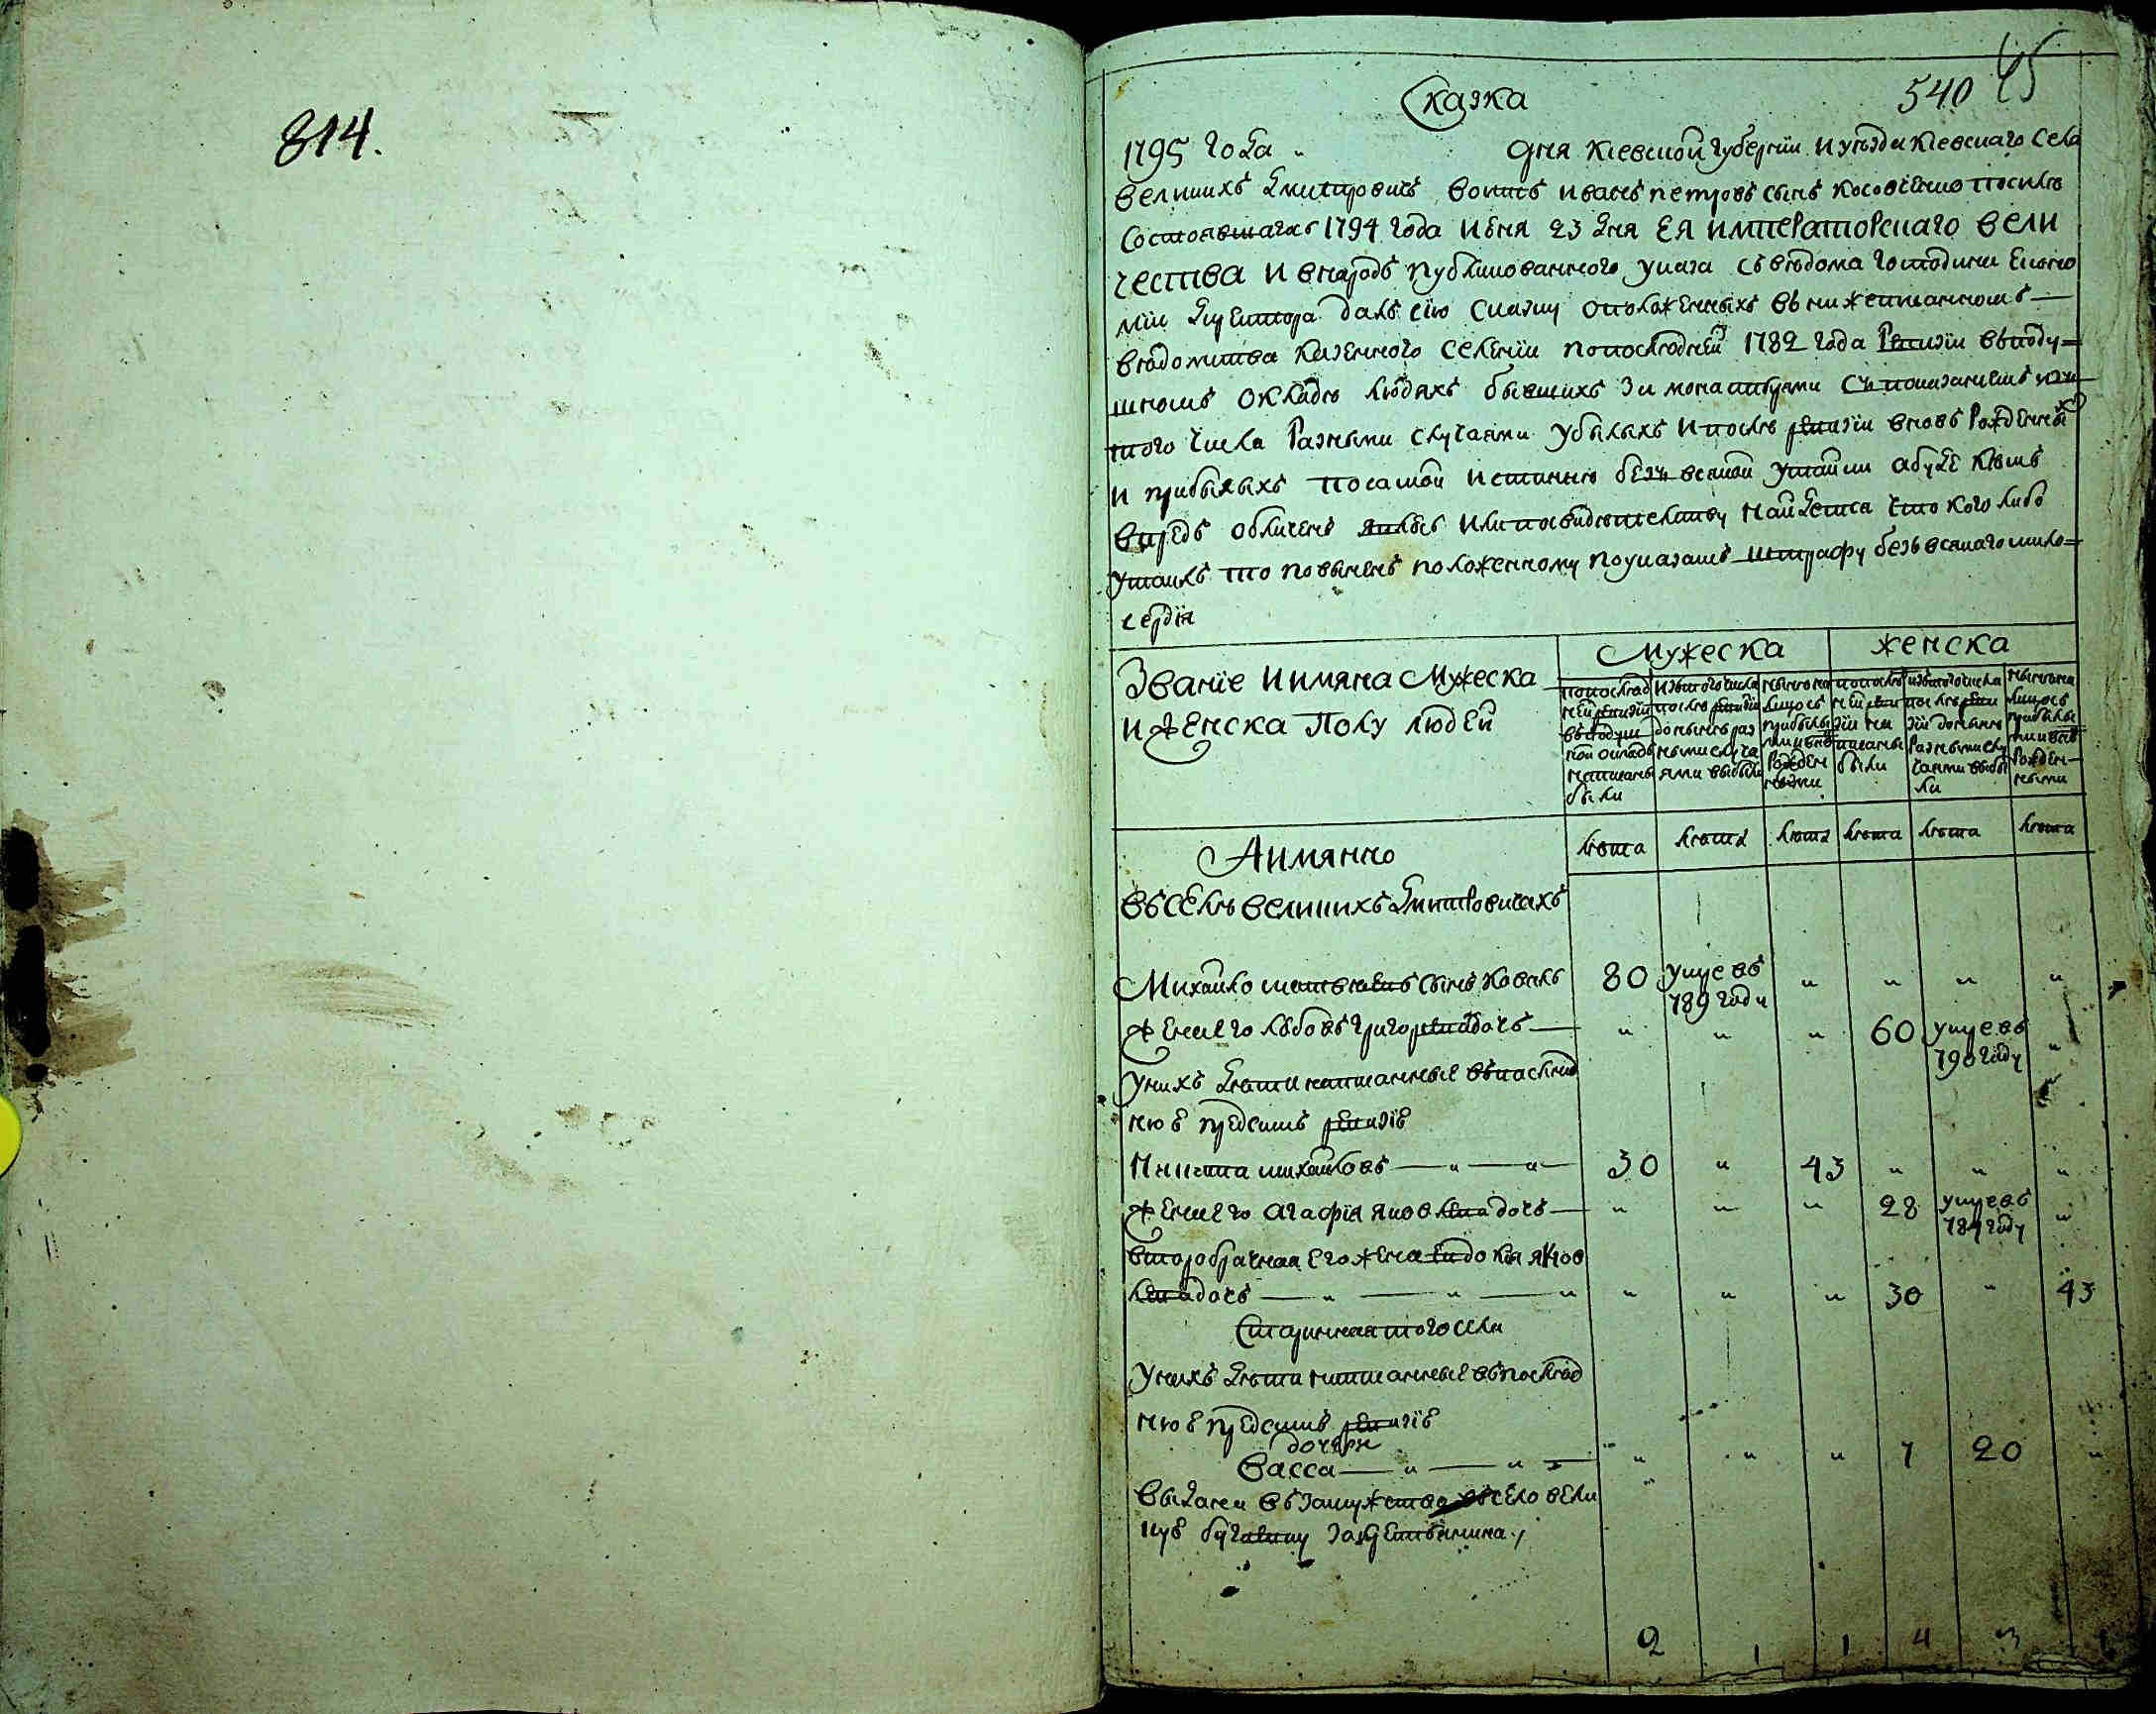 814.
540 45
Сказка
1795 года „ дня Киевской губернии и уезда Киевского села
великихъ Дмитровичъ воитъ иванъ петровъ сынъ посиле
Состоявшагось 1794 года июня 23 дня ЕЯ императорскаго вели
чества и внародъ публикованного указа съведома господина Економии
Директора далъ сию сказку оположенныхъ вънижеписанномъ
ведомства казенного селении попоследней 1782 года Ревизии вподу=
шномъ окладе людяхъ бывшихъ за монастырями съпоказаниемъ изъ
того числа Разными случаями убылыхъ ипосле ревизии вновь Рожденныхъ
и прибылыхъ посамой истинне безъ всякой утайки абуде кемъ
впредь обличенъ явлюсь илипосвидетелству найдется что кого либо
утаилъ то повиненъ положенному поуказамъ штрафу безъ всякаго мило=
сердїя
Званїе иимяна Мужеска
и женска Полу людей
Мужеска женска
попослед ней ревизии вподуш ном окладе написаны были
изътогочисла после ревизии доныне раз ными случа ями выбыли
ныне на лицо съ прибылы ми и вновь рожден ными
попосле ней реви зии на писаны были
изътогочисла после реви зии доныне Разными слу чаями выбы ли
ныне на лицо съ прибылы ми и вновь рожден ными
Аимянно лета лета лета лета лета лета
въселе великихъ Дмитровичахъ
Михайло матвеевъ сынъ коваль 80 умре въ 789 году „ „ „ „
жена его любовь григорева дочь „ „ „ 60 умре въ 790 году „
унихъ дети написанные въпослед
не предъсимъ ревизїе
Никита михайловъ „ „ 30 „ 43 „ „ „
жена его агафїя яковлева дочь „ „ „ 28 умре въ 789 году „
второбрачная его жена евдокия яков
лева дочь „ „ „ „ „ „ 30 „ 43
Старинная того села
унихъ дети написанные въпослед
не предъсимъ ревизїе
дочери
Васса „ „ „ „ „ 7 20 „
выдана взамужство всело вели
кую бугаевку закрестьянина
2 1 1 4 3 1